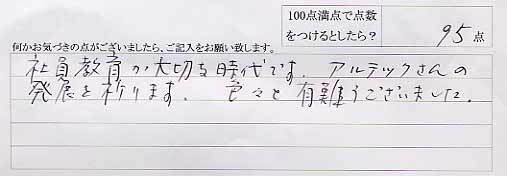 100点満点で点数
をつけるとしたら？ 95点
何かお気づきの点がございましたら、ご記入をお願い致します。
社員教育が大切な時代です。アルテックさんの
発展を祈ります。 色々と有難うございました。